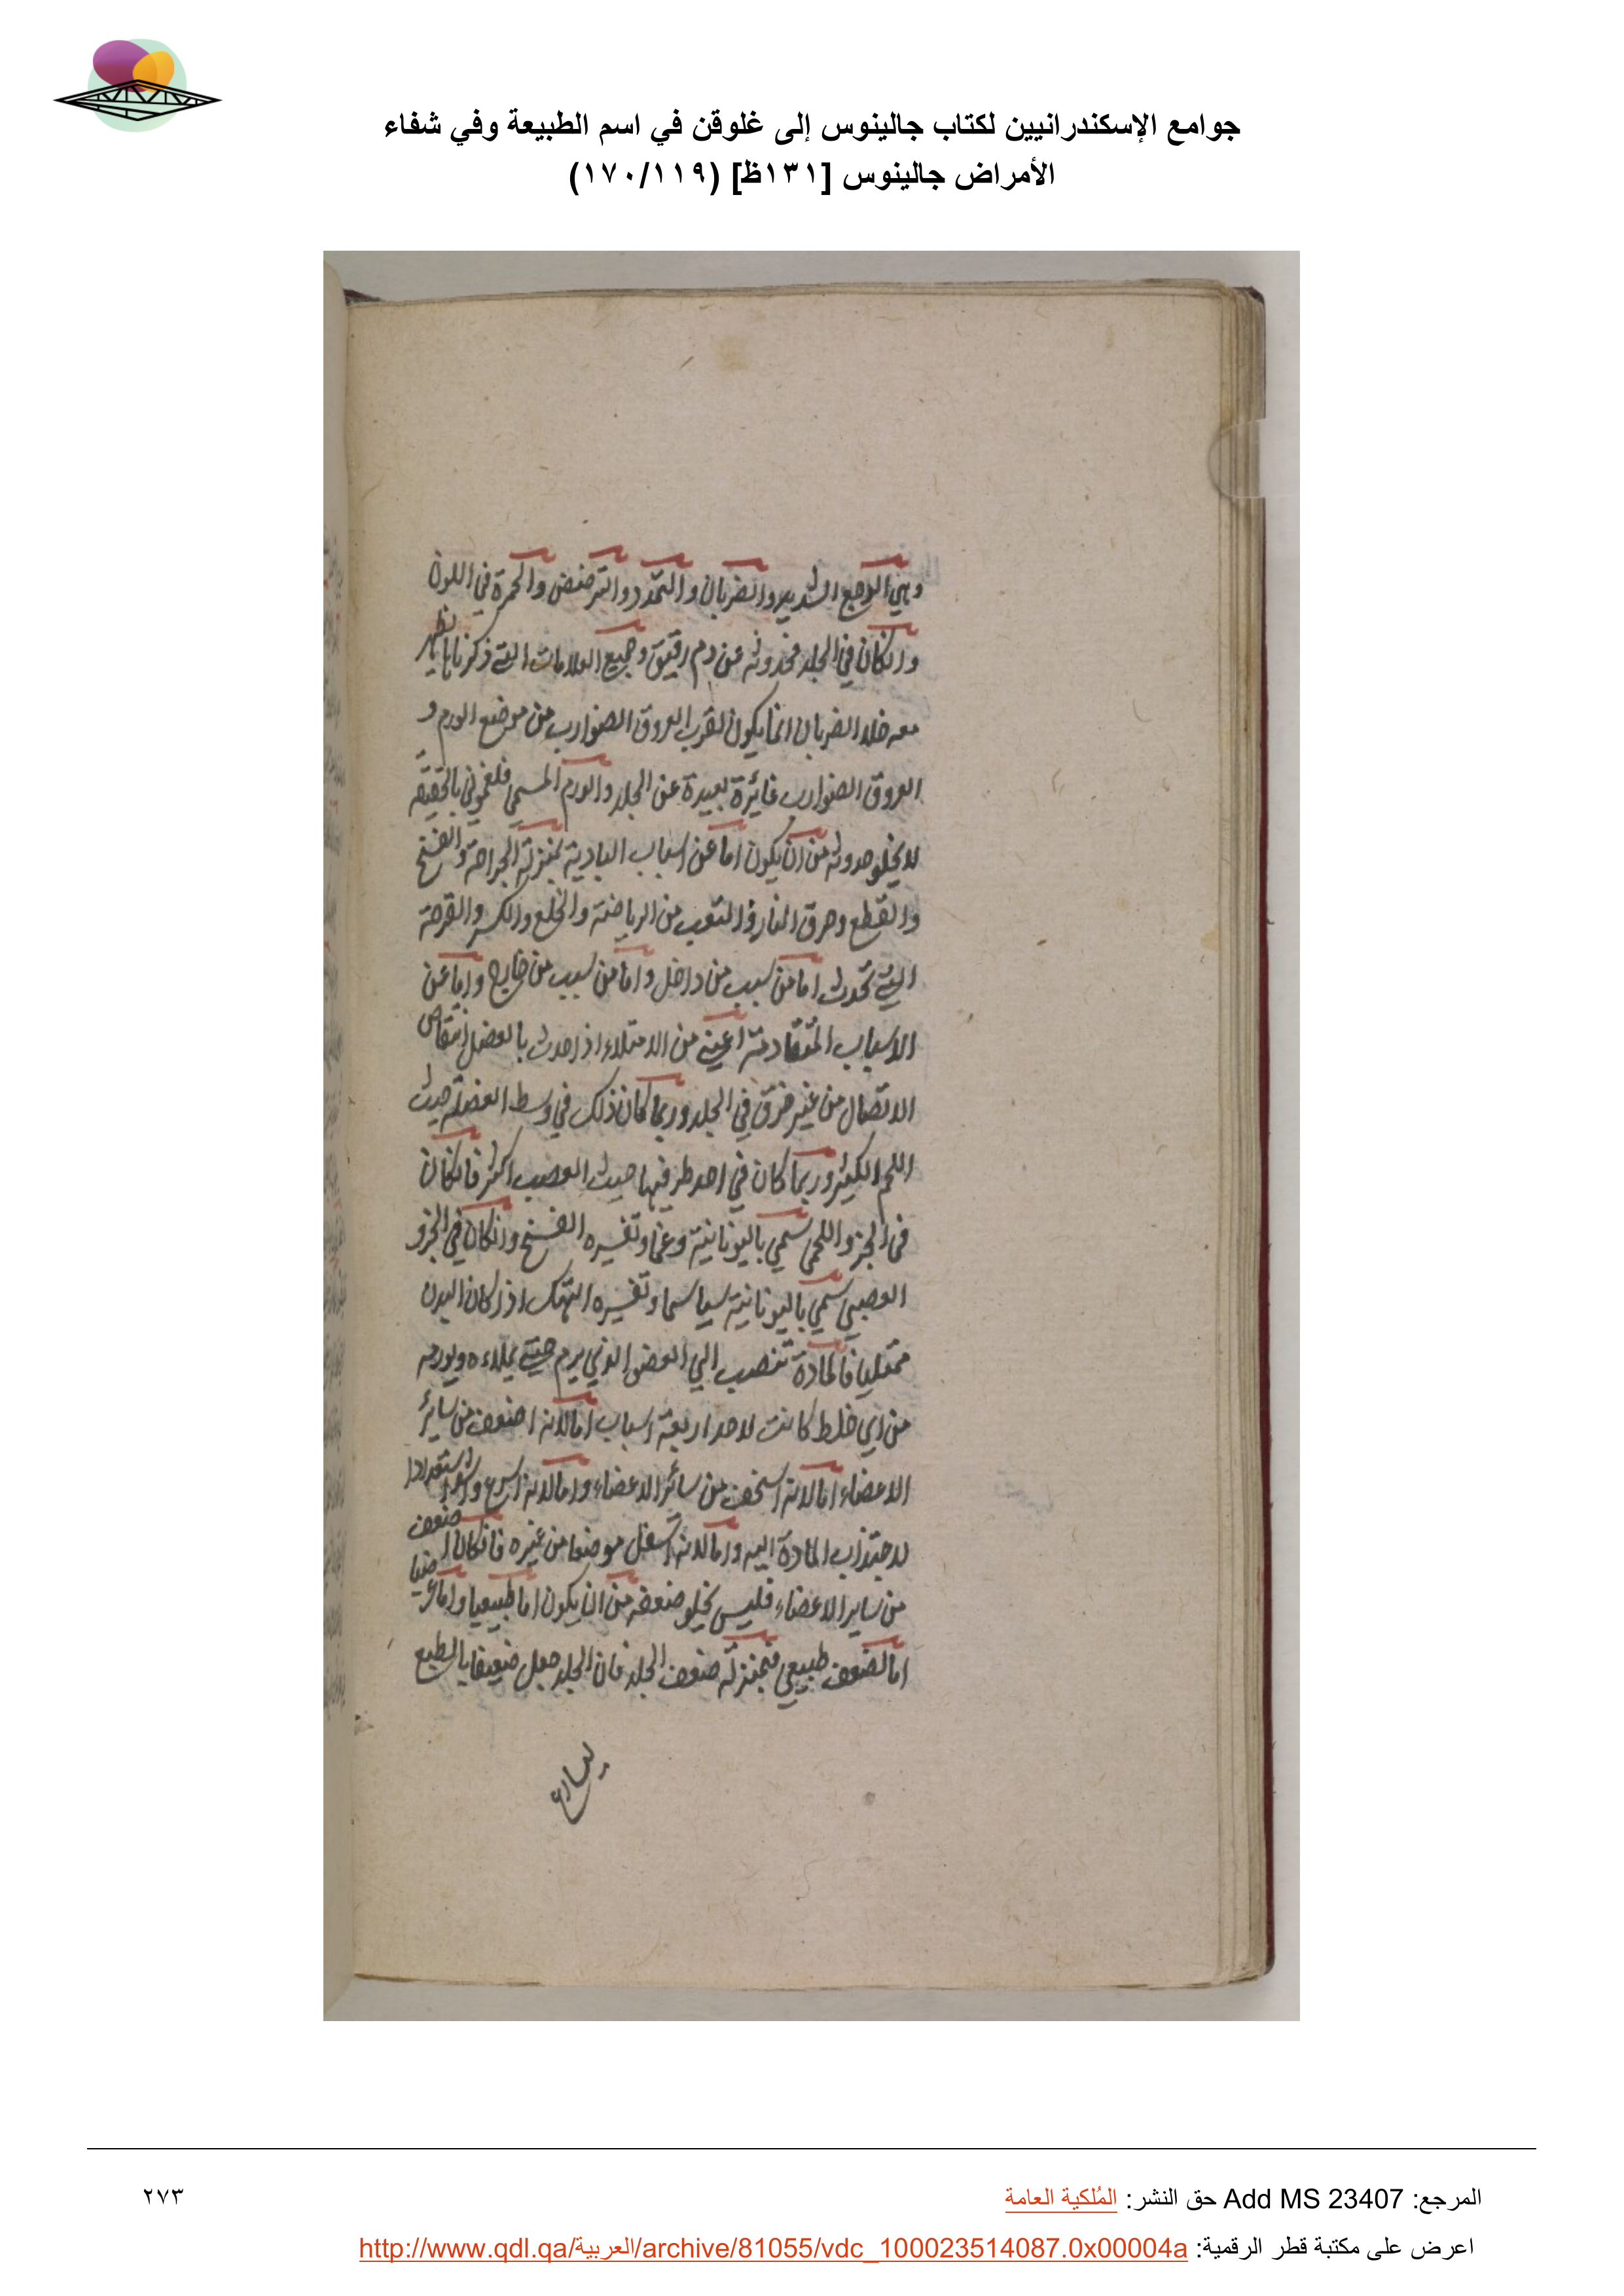 جوامع الإسكندرانيين لكتاب جالينوس إلى غلوقن في اسم الطبيعة وفي شفاء
الأمراض جالينوس [١٣١ظ] (١٧٠/١١٩)
وهي الوجع الشديد والضربان والتمدد والترضض والحمرة في اللون
وانكان في الجلد فحدوثه عن دم رقيق وجميع العلامات التي ذكرناها يظهر
معه خلا الضربان انما يكون لقرب العروق الضوارب من موضع الورم و
العروق الضوارب غائرة بعيدة عن الجلد والورم المسمي فلغموني بالحقيقة
لا يخلو حدوثه من ان يكون اما عن اسباب البادية بمنزلة الجراحة والفسخ
والقطع وحرق النار والتعب من الرياضة والخلع والكسر والقرحة
التي تحدث اما من سبب من داخل واما من سبب من خارج واما عن
الاسباب المتقادمة اعني من الامتلاء اذا حدث بالعضل انتقاض
الاتصال من غير خرق في الجلد وربما كان ذلك في وسط العضلة حيث
اللحم الكثير وربما كان في احد طرفيها حيث العصب اكثر فانكان
في الجزو اللحمي سمي باليونانية وغما وتفسيره الفسخ وانكان في الجزو
العصبي سمي باليونانية سپاسما وتفسيره التهتك اذا كان البدن
ممتليا فالمادة تنصب الي العضو الذي يرم حتي يملاءه ويورمه
من اي خلط كانت لاحد اربعة اسباب اما لانه اضعف من سائر
الاعضاء اما لانه اسخف من سائر الاعضاء واما لانه اسرع استعدادا
لاجتذاب المادة اليه واما لانه اسفل موضعا من غيره فانكان اضعف
من ساير الاعضاء فليس يخلو ضعفه من ان يكون اما طبيعيا واما عرضيا
اما لضعف طبيعي فبمنزلة ضعف الجلد فان الجلد جعل ضعيفا بالطبع
المرجع: Add MS 23407 حق النشر: المُلكية العامة
٢٧٣
اعرض على مكتبة قطر الرقمية: http://www.qdl.qa/العربية/archive/81055/vdc_100023514087.0x00004a